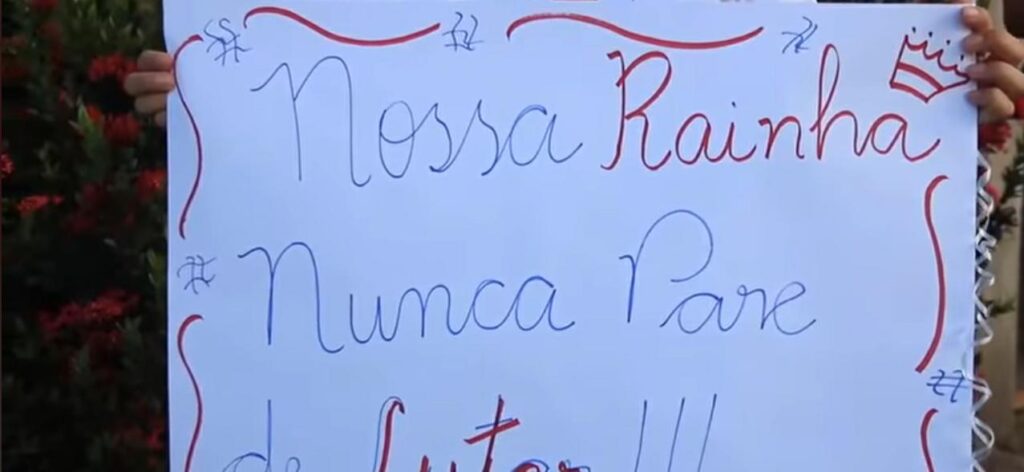 Nossa Rainha
Nunca Pare
de Lutar !!!